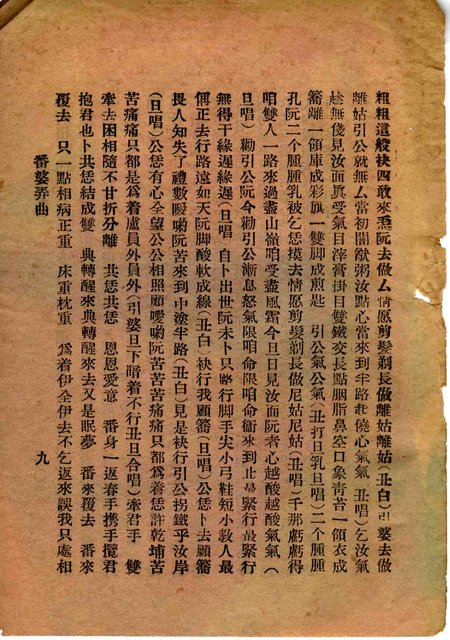 粗粗這般快四散來𤆬阮去做厶情愿剪髮剃長做離姑離姑(丑白)引婆去做
離姑引公就無厶當初闇猷粥汝點心當來到半路起僥心氣氣(丑唱)乞汝氣
趁無俴見汝面眞受氣目滓膏掛目雙鐵交長點胭脂鼻空口象青苔一領衣成
簥離一領庫成彩旗一雙脚成煎匙 引公氣公氣(丑打旦乳旦唱)二个腫腫
孔阮二个腫腫乳被乞恁摸去情愿剪髮剃長做尼姑尼姑(丑唱)千那虧虧得
咱雙人一路來過盡山嶺咱受盡風霜今旦日見汝面阮者心越酸越酸氣氣(
旦唱)勸引公阮今勸引公漸息怒氣限咱命限咱命衝來到止最緊行最緊行
無得于緣遲緣遲(旦唱 自卜出世阮未卜只路行脚手尖小弓鞋短小敎人最
儞正去行路遠如天阮脚酸軟成線(丑白)袂行我顧簥(旦唱)公恁卜去顧簥
畏人知失了禮數噯喲阮苦來到中途半路(丑白)見是袂行引公拐鐵乎汝岸
(旦唱)公恁有心全望公公相照顧噯喲阮苦苦苦痛痛只都爲着恁許乾埔苦
苦痛痛只都是爲着盧員外員外(引婆旦下暗着不行丑旦合唱)牽君手 雙
牽去困相隨不甘折分離 共恁共恁 恩恩愛意 番身一返春手携手攬君
抱君也卜共恁結成雙 典轉醒來典轉醒來去又是眠夢 番來覆去 番來
覆去 只一點相病正重 床重枕重 爲着伊全伊去不乞返來誤我只處相
番婆弄曲 九